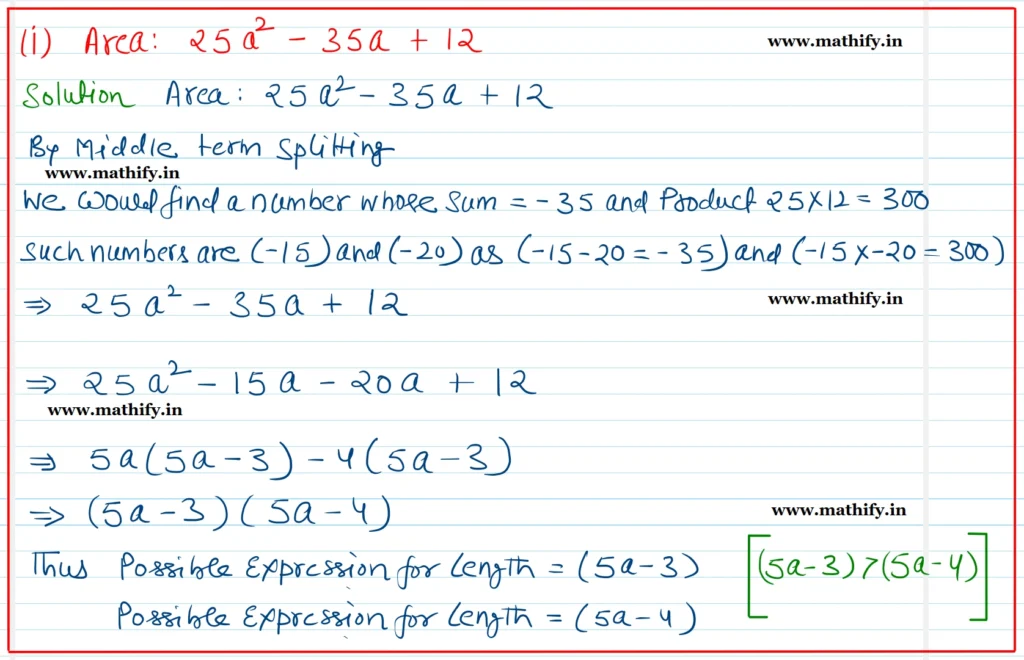 (i) Area: 25a² - 35a + 12
www.mathify.in
Solution Area: 25a² - 35a + 12
By Middle term Splitting
www.mathify.in
We would find a number whose Sum = -35 and Product 25×12 = 300
such numbers are (-15) and (-20) as (-15-20 = -35) and (-15 × -20 = 300)
⇒ 25a² - 35a + 12
www.mathify.in
⇒ 25a² - 15a - 20a + 12
www.mathify.in
⇒ 5a(5a-3) - 4(5a-3)
⇒ (5a-3)(5a-4)
www.mathify.in
Thus Possible Expression for Length = (5a-3) [(5a-3) > (5a-4)]
Possible Expression for Length = (5a-4)